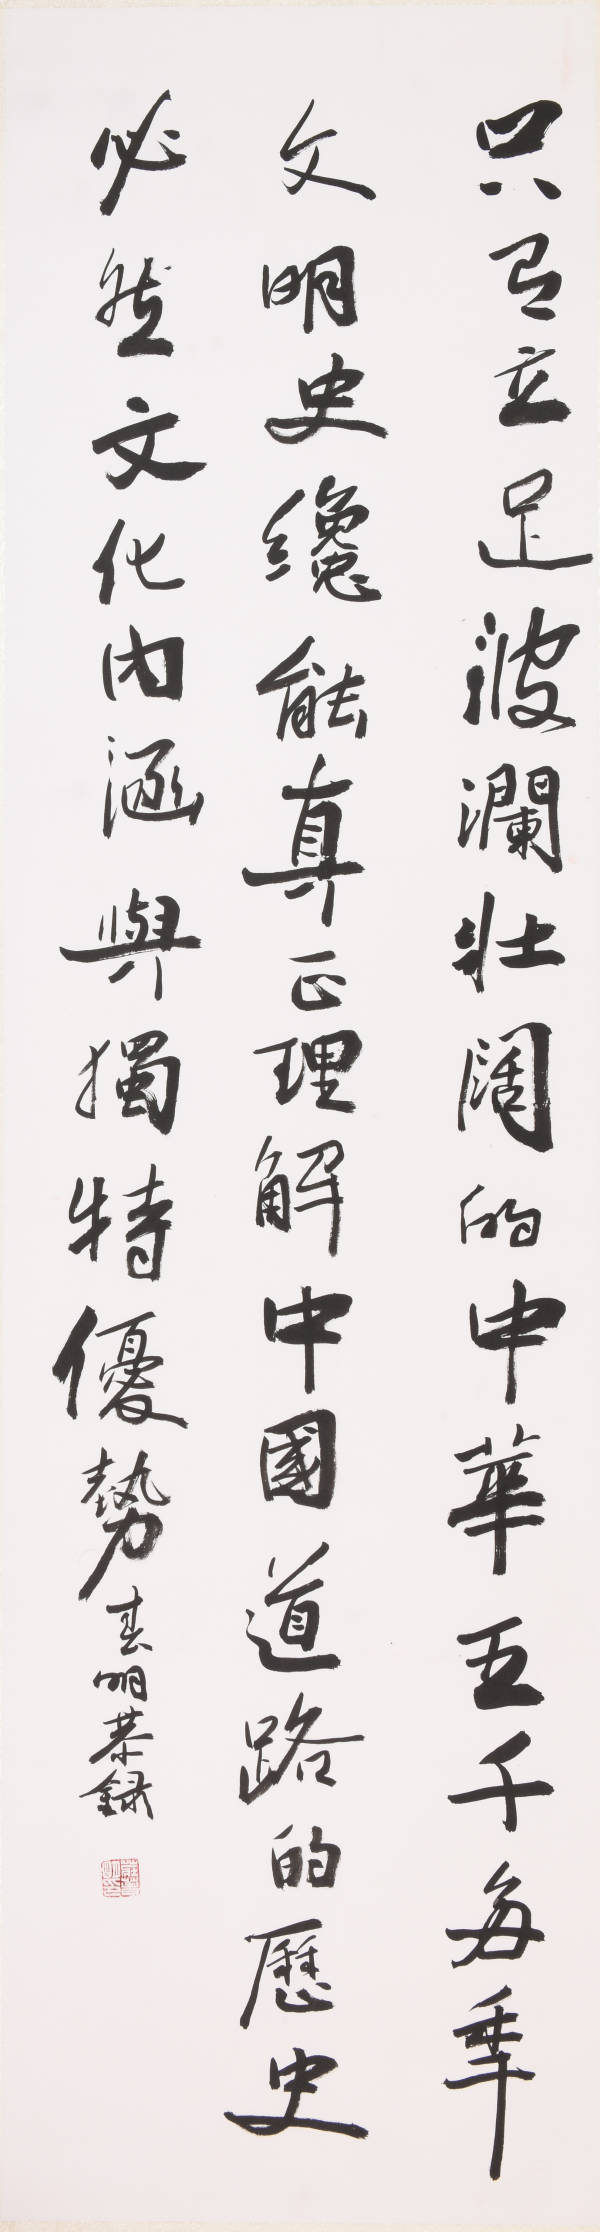 只有立足波瀾壯闊的中華五千多年
文明史纔能真正理解中國道路的歷史
必然文化內涵與獨特優勢
春明恭録